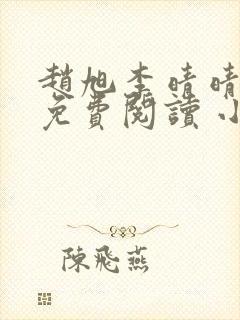 趙旭李晴晴
免費閱讀小
陳飛燕